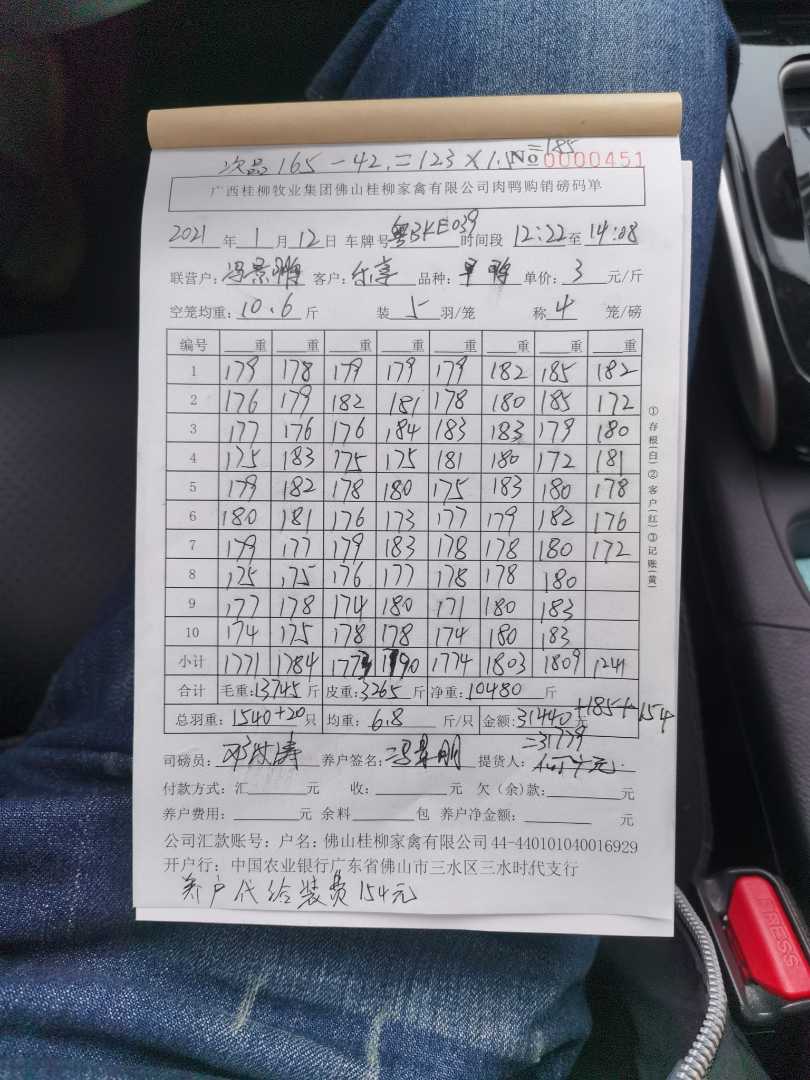 次品165-42=123×1.5=185
No 0000451
广西桂柳牧业集团佛山桂柳家禽有限公司肉鸭购销磅码单
2021年1月12日 车牌号粤BKE039 时间段12:22至14:08
联营户: 客户: 品种: 单价:3元/斤
空笼均重:10.6斤 装5羽/笼 称4笼/磅
编号 重 重 重 重 重 重 重 重
1 179 178 179 179 179 182 185 182
2 176 179 182 181 178 180 185 172
3 177 176 176 184 183 183 179 180
4 175 183 175 175 181 180 172 181
5 179 182 178 180 175 183 180 178
6 180 181 176 173 177 179 182 176
7 179 177 179 183 178 178 180 172
8 175 175 176 177 178 178 180
9 177 178 174 180 171 180 183
10 174 175 178 178 174 180 183
小计 1771 1784 1773 1790 1774 1803 1809 1241
合计 毛重:13745斤 皮重:3265斤 净重:10480斤
总羽重:1540+20只 均重:6.8斤/只 金额:31440元+185+154
=31779
司磅员: 养户签名: 提货人:
付款方式:汇元 收:元 欠(余)款:元
养户费用:元 余料包 养户净金额:元
公司汇款账号:户名:佛山桂柳家禽有限公司44-440101040016929
开户行:中国农业银行广东省佛山市三水区三水时代支行
养户代给装费154元
①存根(白)②客户(红)③记账(黄)
PRESS